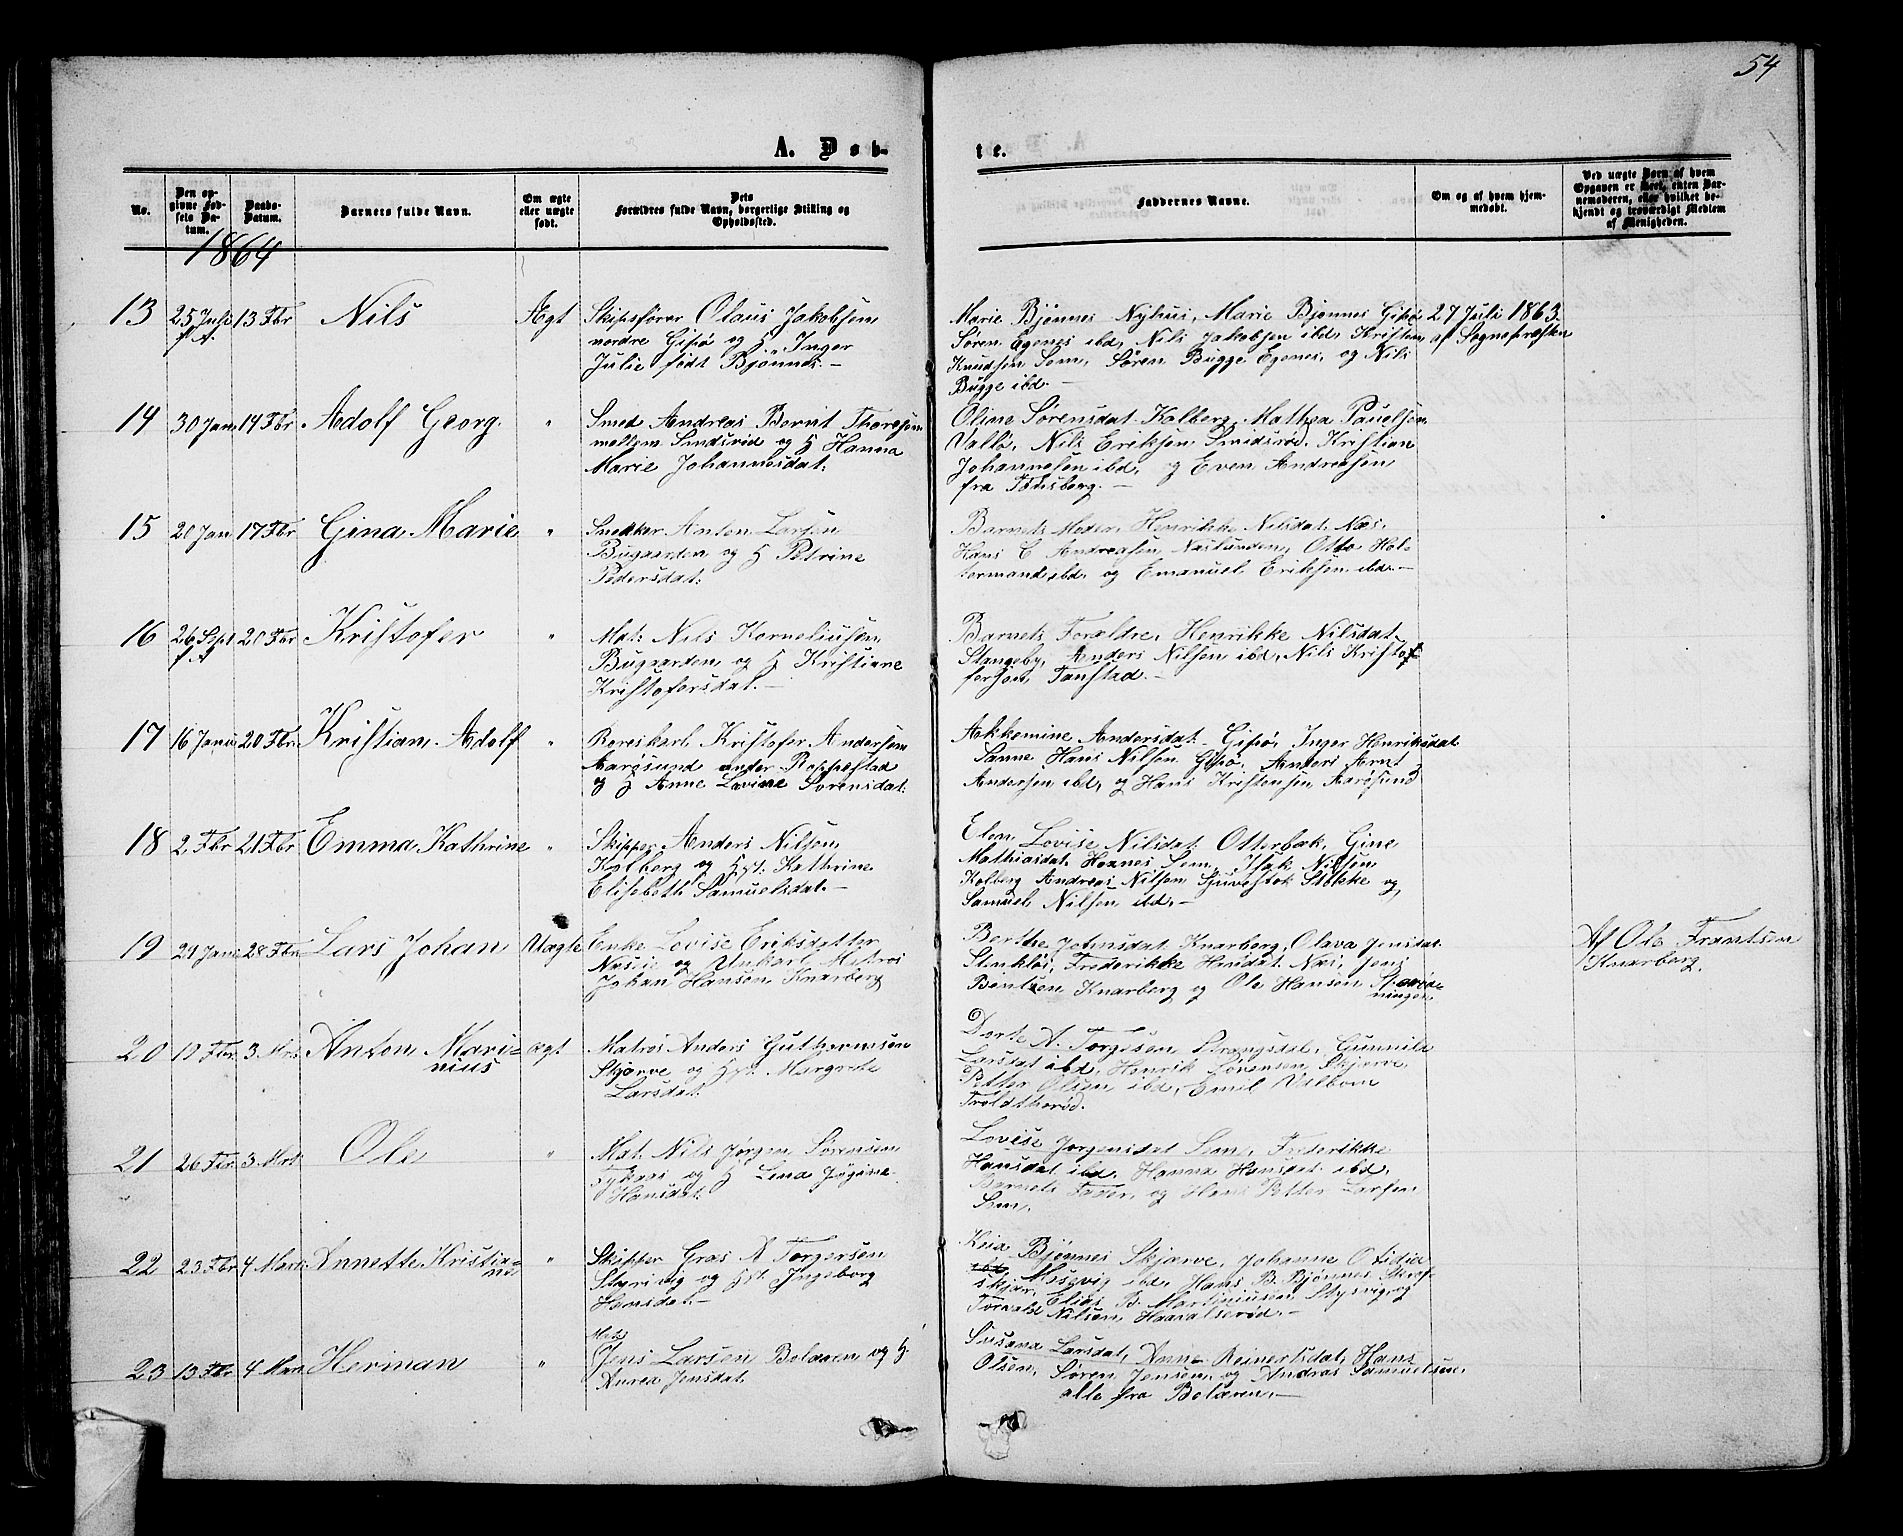 54
A. Døb-
te.
No.
Den op-
givne Fød-
sels Da-
tum.
Daabs-
Datum.
Barnets fulde Navn.
Om ægte
eller uægte
født.
Dets
Forældres fulde Navn, borgerlige Stilling og
Opholdssted.
Faddernes Navne.
Om og af hvem hjem-
medøbt.
Ved uægte Børn af hvem
Opgaven er skeet, enten Bar-
nemoderen, eller hvilket be-
kjendt og troværdigt Medlem
af Menigheden.
1864
13 25 Juli 13 Fbr Nils Ægt
f. A.
Skipsfører Olaus Jakobsen
nordre Gipø og H. Inger
Julie født Bjønnes.-
Marie Bjønnes Nyhus, Marie Bjønnes Gipø
Søren Egenes ibd, Nils Jakobsen ibd, Kristen
Knudsen Sem, Søren Bugge Egenes, og Nils
Bugge ibd.-
27 Juli 1863.
af Sognepræsten
14 30 Jan 14 Fbr Adolf Georg. "
Smed Andreas Bernt Thoresen
mellem Smidsrød og H Hanna
Marie Johannesdat:
Oline Sørensdat. Kolberg, Mathea Paulsen
Vallø, Nils Eriksen Smidsrød, Kristian
Johannesen ibd, og Even Andreasen
fra Tønsberg.-
15 20 Jan 17 Fbr Gina Marie "
Snedker Anton Larsen
Bugaarden og H Petrine
Pedersdat:
Barnets Moder, Henrikke Nilsdat. Næs,
Hans E Andreasen Næslunden, Otto Hol-
termand ibd, og Emanuel Eriksen ibd.-
16 26 Sept 20 Fbr Kristofer "
f A
Mat: Nils Korneliusen,
Bugaarden og H Kristiane
Kristofersdat.-
Barnets Forældre, Henrikke Nilsdat-
Stangeby, Anders Nilsen ibd, Nils Kristof-
fersen, Tanstad.-
17 16 Janu 20 Fbr. Kristian Adolf "
Roreskarl Kristofer Andersen
Aarøsund under Roppestad
og H Anne Lovise Sørensdat:
Aakkomine Andersdat- Gipø, Inger Henriksdat
Sanne, Hans Nilsen Gipø, Anders Arnt
Andersen ibd, og Hans Kristensen Aarøsund
18 2 Fbr 21 Fbr Emma Kathrine "
Skipper Anders Nilsen,
Kolberg og Hst. Kathrine
Elisabeth Samuelsdat.-
Elen Lovise Nilsdat. Otterbæk, Gine
Mathiasdat. Hexnes Sem, Isak Nilsen
Kolberg Andreas Nilsen Sjuvestok Stokke og
Samuel Nilsen ibd.-
19 29 Janu 28 Fbr Lars Johan Uægte
Enke Lovise Eriksdatter
Næsie og Unkarl Matros
Johan Hansen Knarberg
Berthe Johnsdat. Knarberg, Olava Jensdat.
Stenkløi, Frederikke Hansdat. Næs, Jens
Bentsen Knarberg og Ole Hansen
Af Ole Frantsen
Knarberg.
20 12 Fbr. 3 Mrs. Anton Mari- ægt
nius
Matros Anders Guthormsen
Skjærve og Hst. Margrete
Larsdat.
Dorte A. Torgesen Strængsdal, Gunnild
Larsdat ibd, Henrik Sørensen, Skjærve,
Petter Olsen ibd, Emil Valbom
Troldthorød.
21 26 Fbr. 3 Mrs. Ole "
Mat. Nils Jørgen Sørensen
og H Lena Jørgine
Hansdat.
Lovise Jørgensdat Sem, Frederikke
Hansdat ibd, Hanna Hansdat. ibd.
Barnets Fader, og Hans Petter Larsen
Sem.
22 23 Fbr 4 Mars Annette Kristia- "
ne
Skipper Gras A Torgersen
Størvig og Hst. Ingeborg
Hansdat.-
Kaia Bjønnes Skjærve, Johanne Otidia
Mosevig ibd, Hans B. Bjønnes Skref-
skjær, Elias B. Martiniusen Stysvig og
Torvald Nilsen, Haavalserød.-
23 13 Fbr 4 Mars Herman "
Mat.
Jens Larsen Bolæren og H.
Aurea Jensdat.
Susana Larsdat, Anne Reinertsdat, Hans
Olsen, Søren Jensen og Andras Samuelsen,
alle fra Bolæren.-